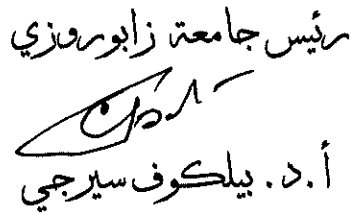 رئيس جامعة زابوروزي
أ.د. بيلكوف سيرجي